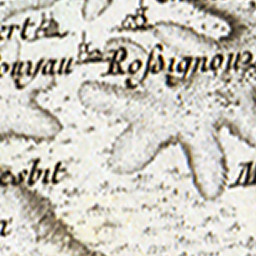 ert
ouyau Roſsignouz
esbit
M
x